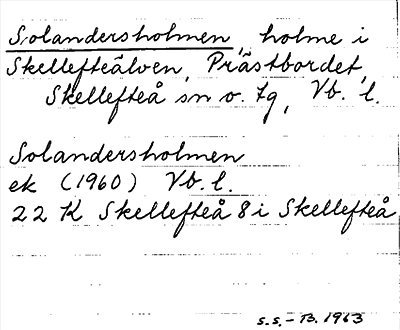 Solandersholmen, holme i
Skellefteälven, Prästbordet,
Skellefteå sn o. tg, Vb. l.
Solandersholmen
ek (1960) Vb. l.
22 K Skellefteå 8 i Skellefteå
S.S. – B. 1963